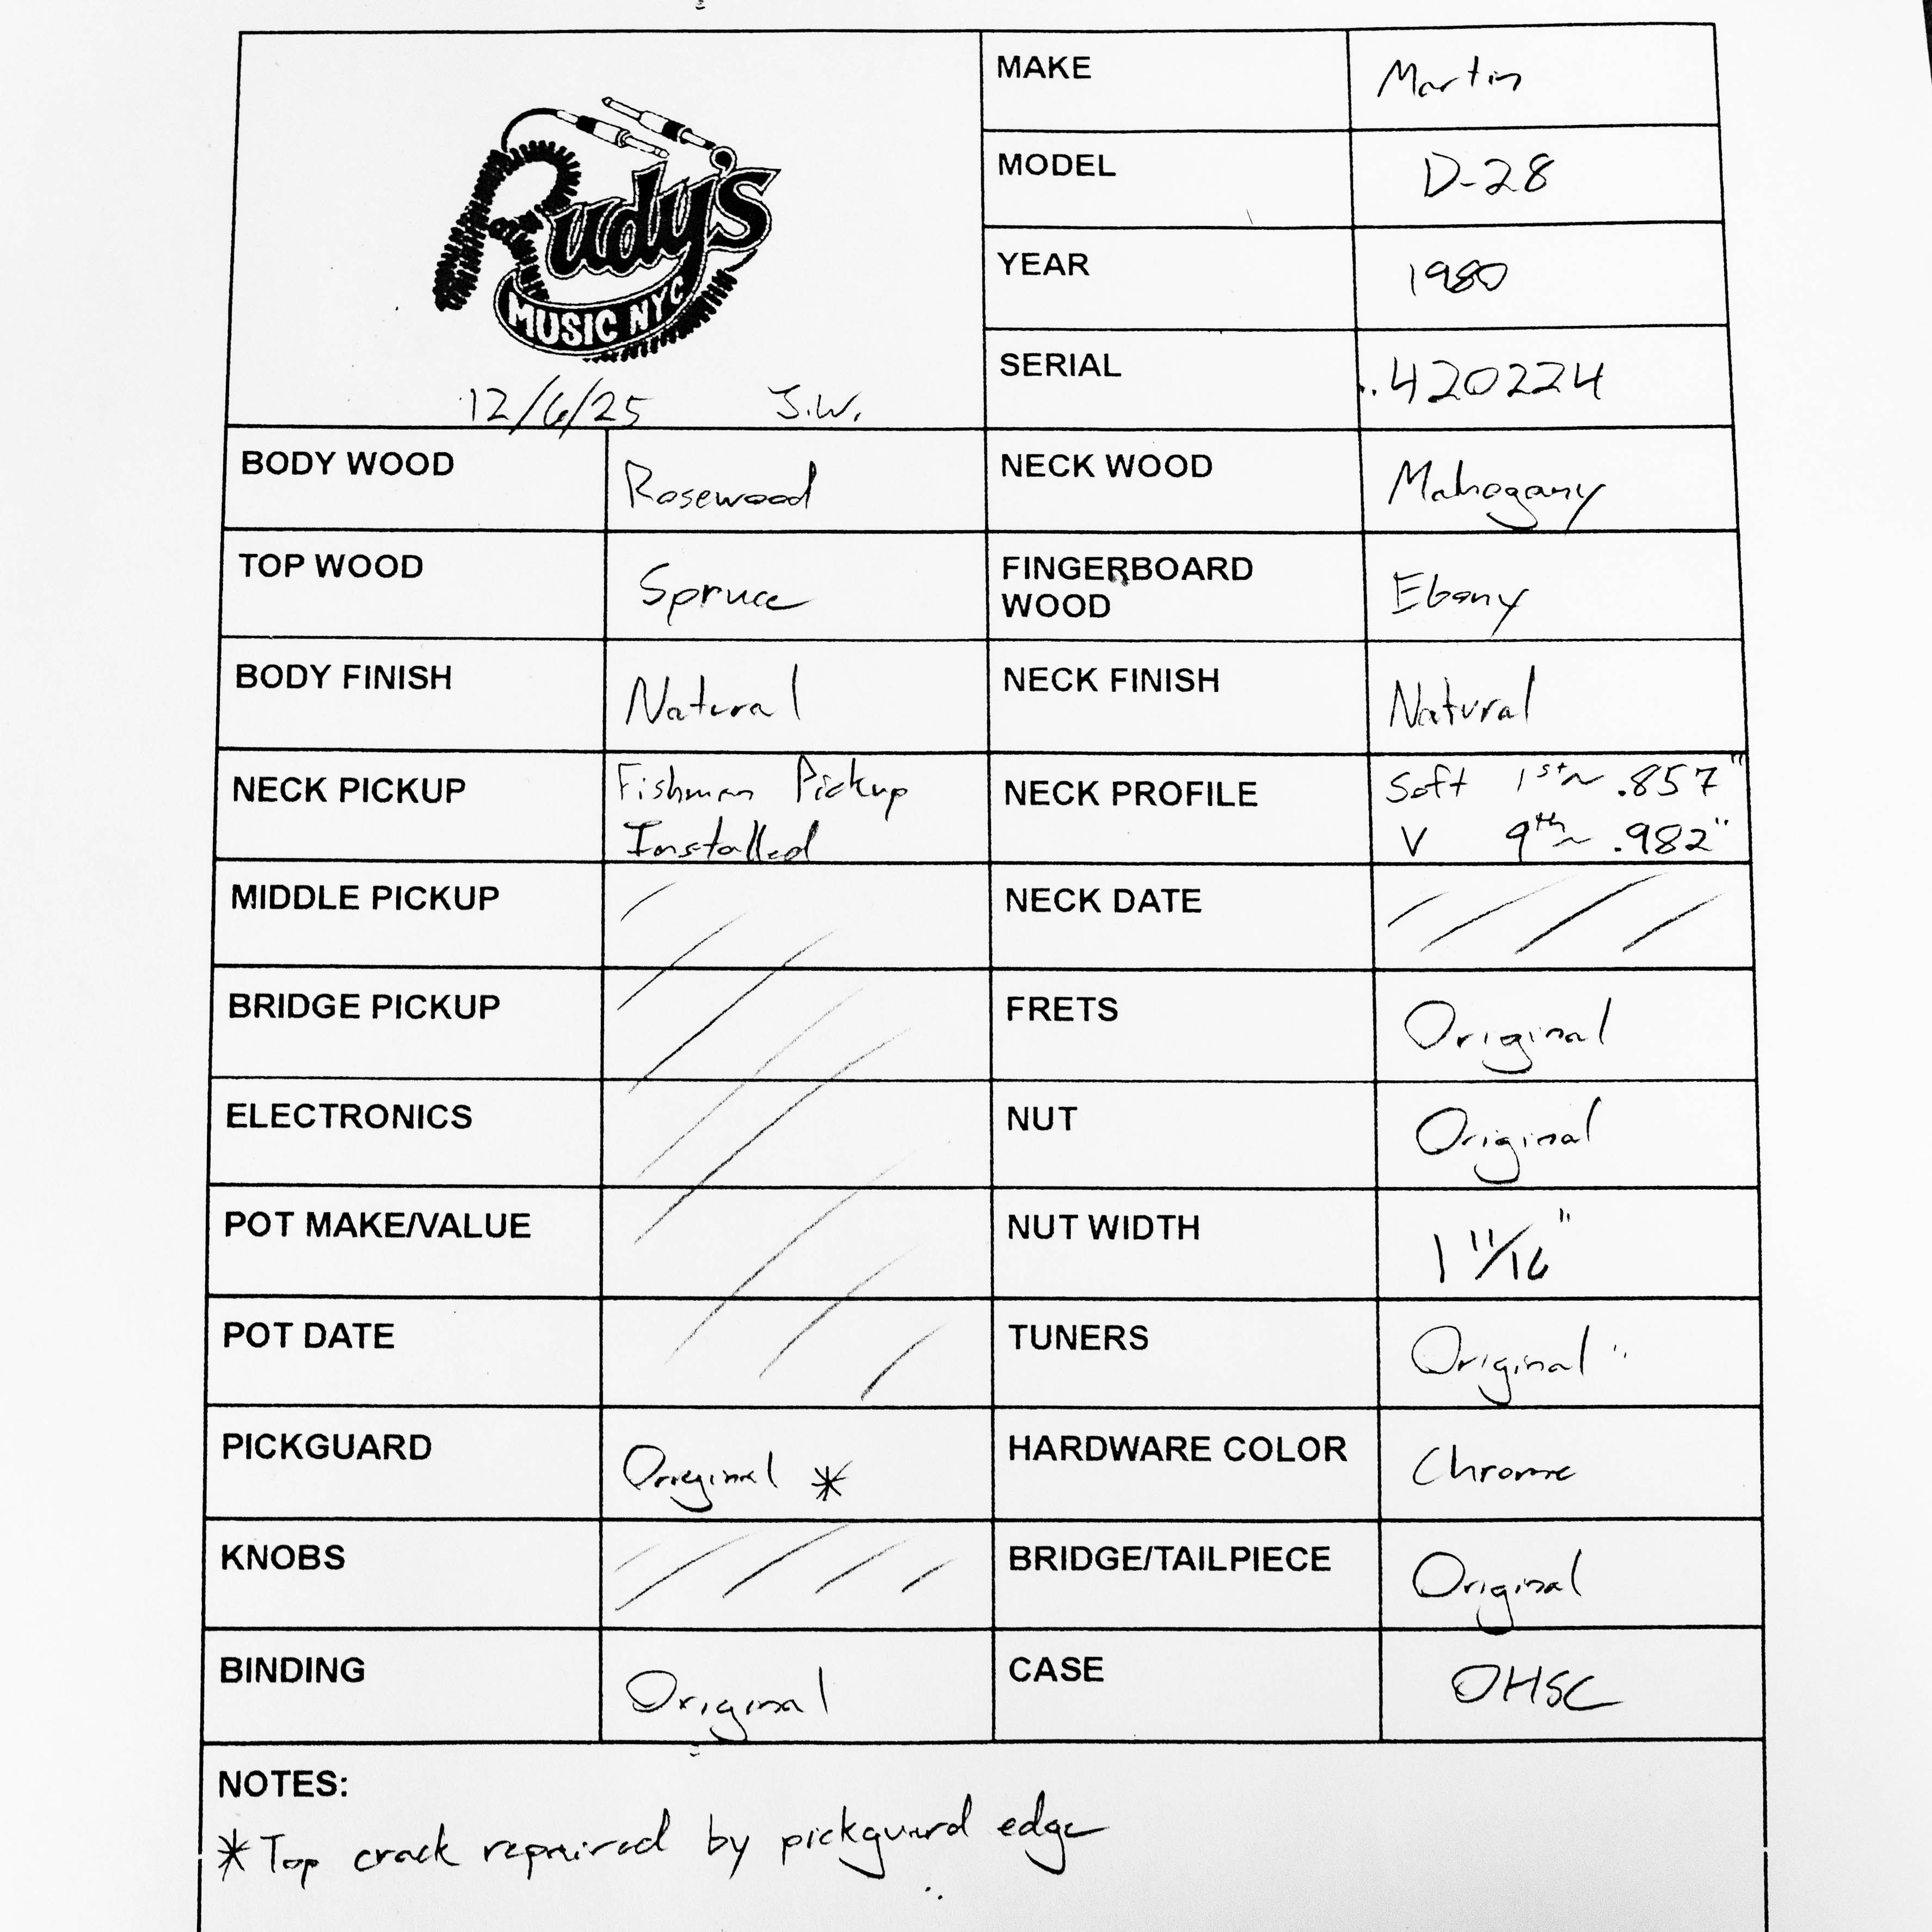 Rudy's
MUSIC NYC
12/6/25 J.W.
MAKE Martin
MODEL D-28
YEAR 1980
SERIAL 420224
BODY WOOD Rosewood NECK WOOD Mahogany
TOP WOOD Spruce FINGERBOARD
WOOD Ebony
BODY FINISH Natural NECK FINISH Natural
NECK PICKUP Fishman Pickup
Installed
NECK PROFILE Soft 1st~ .857"
V 9th~ .982"
MIDDLE PICKUP NECK DATE
BRIDGE PICKUP FRETS Original
ELECTRONICS NUT Original
POT MAKE/VALUE NUT WIDTH 1 11/16"
POT DATE TUNERS Original
PICKGUARD Original * HARDWARE COLOR Chrome
KNOBS BRIDGE/TAILPIECE Original
BINDING Original CASE OHSC
NOTES:
* Top crack repaired by pickguard edge